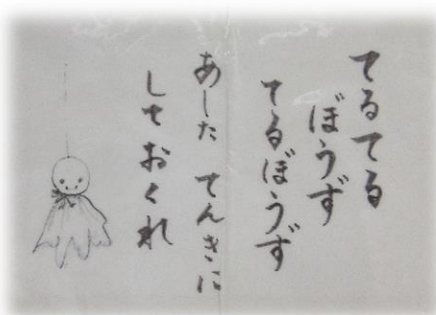 てるてる
ぼうず
てるぼうず
あした てんきに
しておくれ